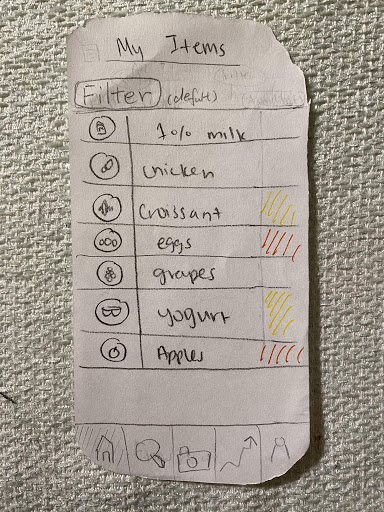 My Items
Filter (defalt)
1% milk
chicken
Croissant
eggs
grapes
yogurt
Apples